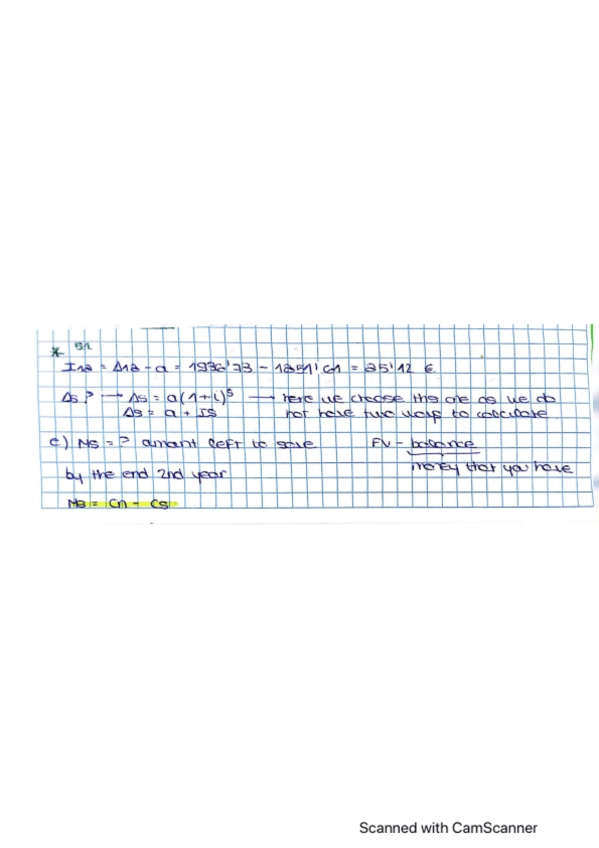 * 51.
I12 = Δ12 - a = 1936'73 - 1251'61 = 25'12 €
Δ5? → Δ5 = a(1+i)⁵ → here we choose this one as we do
Δ5 = a + I5 not have two ways to calculate
c) M5 = ? amount left to save FV - balance
by the end 2nd year money that you have
M3 = Cn - C5
Scanned with CamScanner